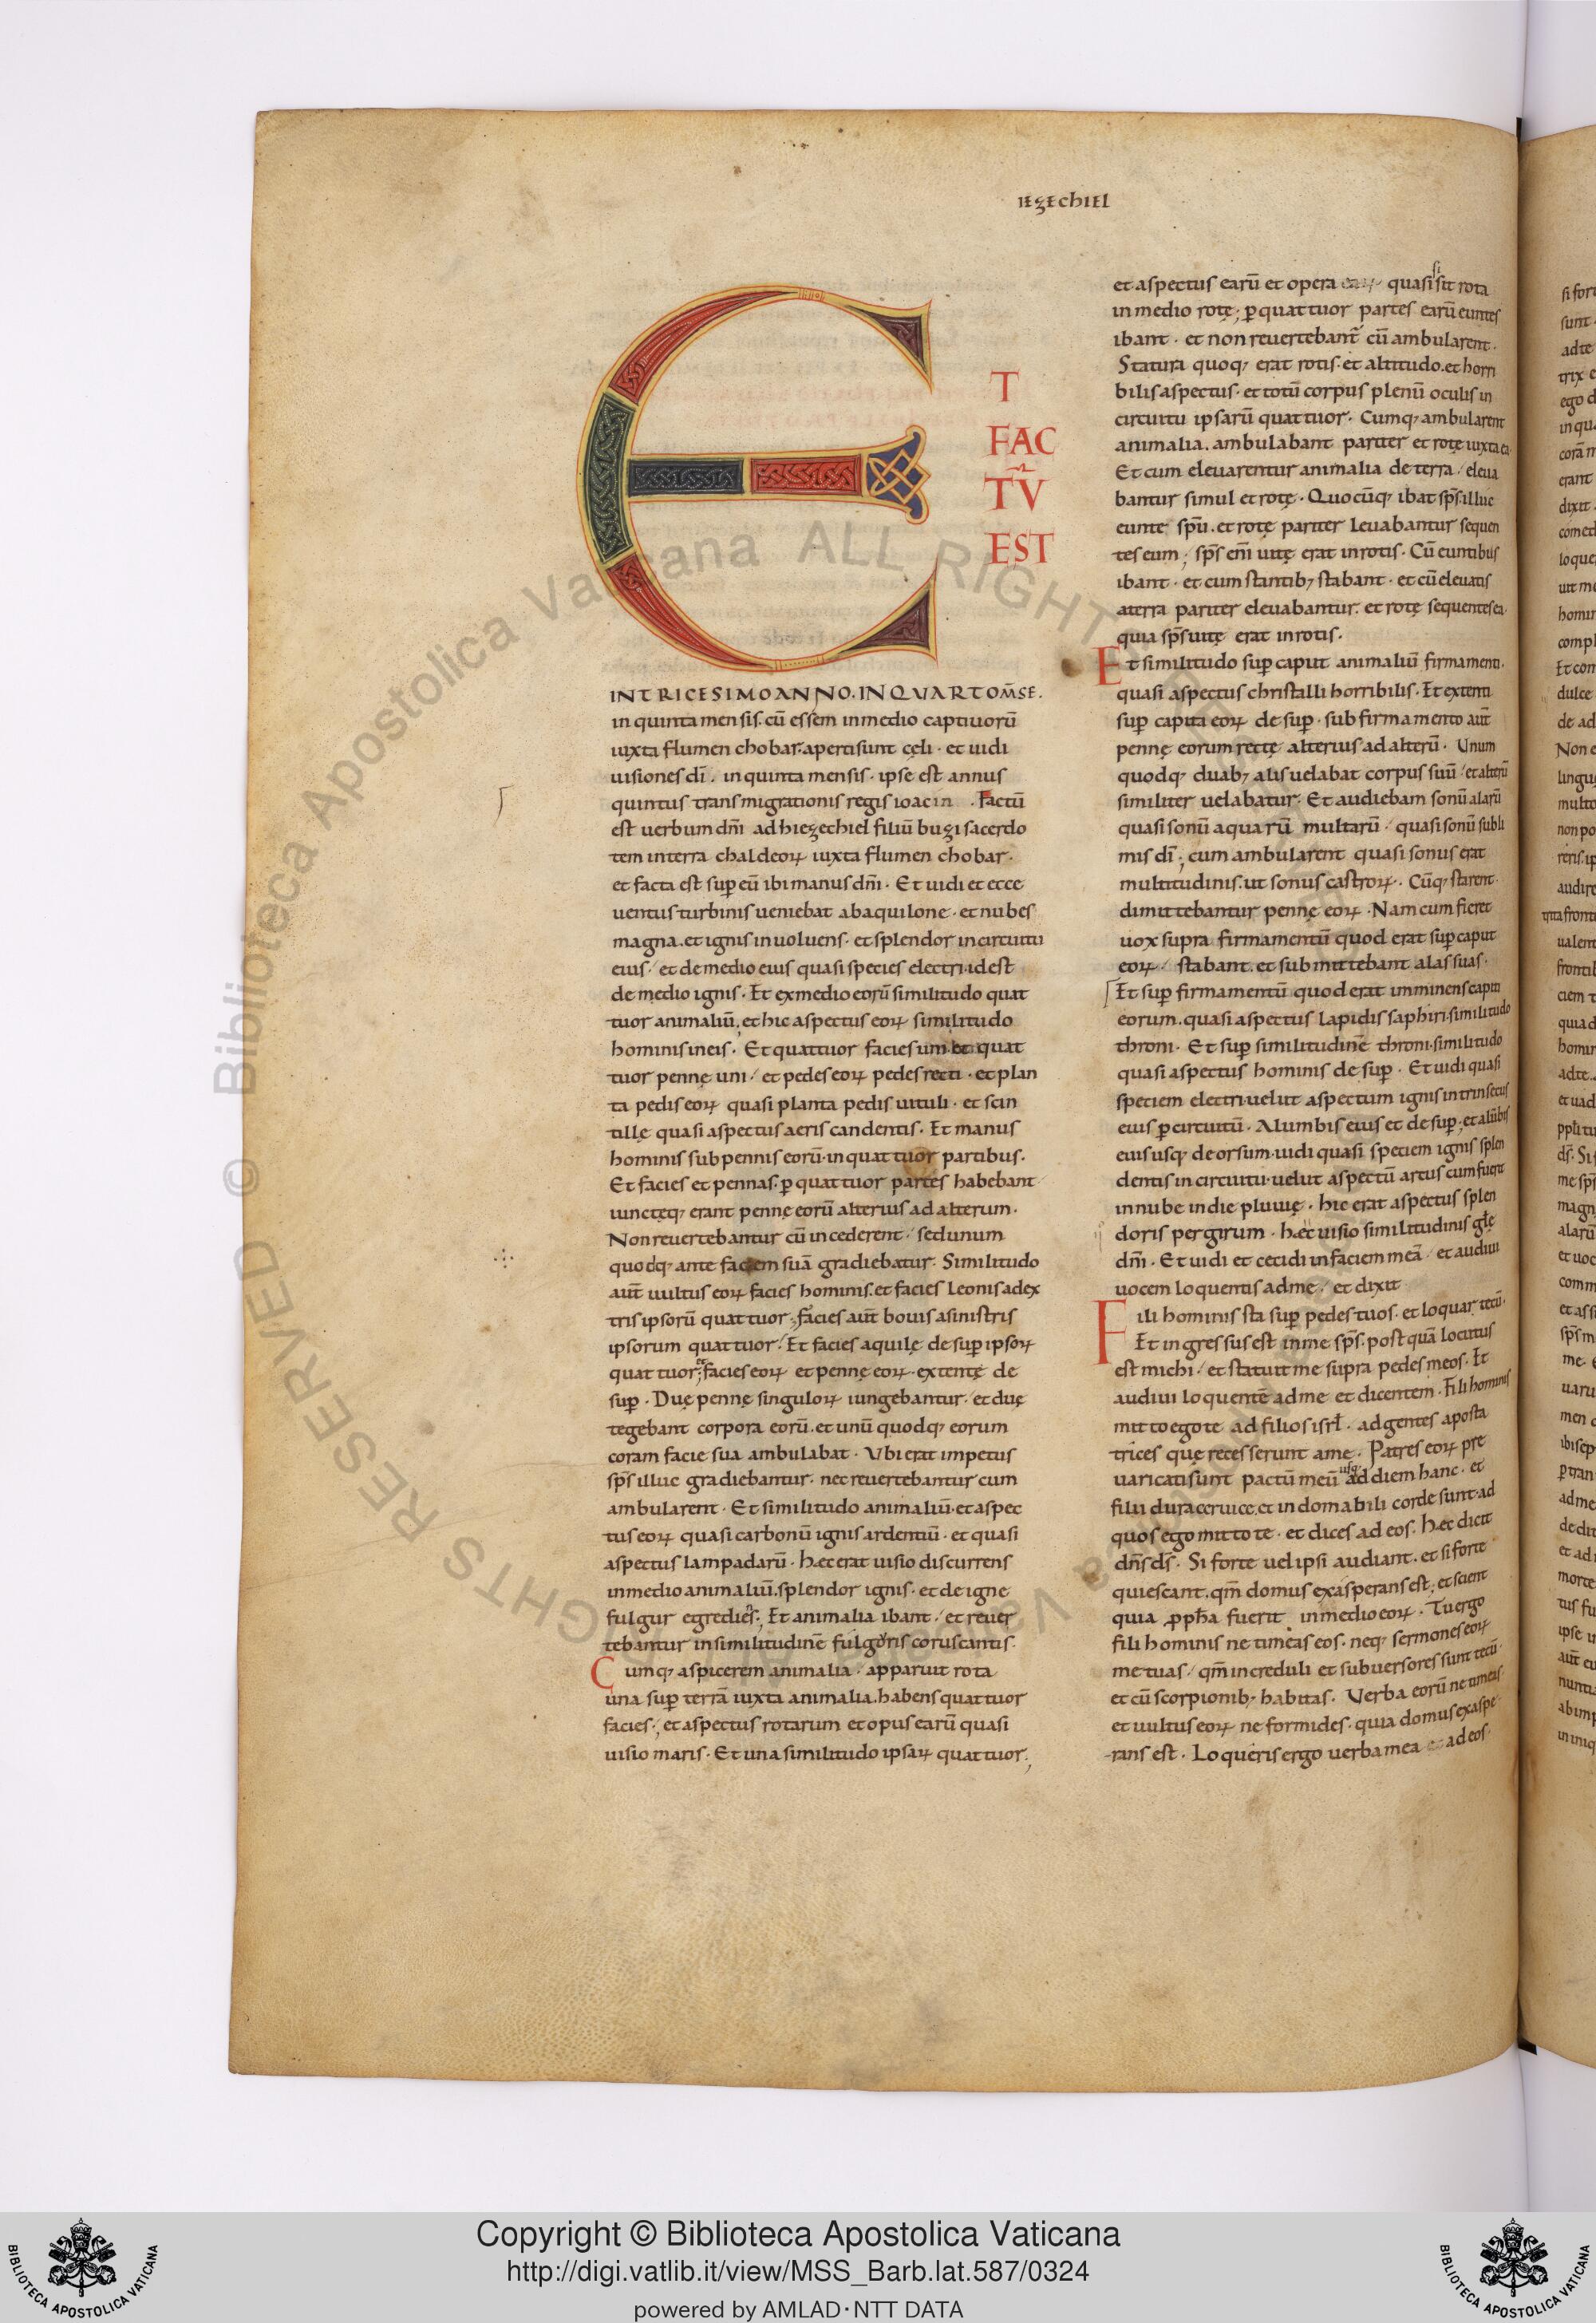 IEZECHIEL
ET
FAC
TV̄
EST
INTRICESIMO ANNO. IN QVARTO M̄SE.
in quinta mensis. cū essem inmedio captiuorū
iuxta flumen chobar. aperti sunt cęli · et uidi
uisiones dī . in quinta mensis · ipse est annus
quintus transmigrationis regis ioacin . Factū
est uerbum dn̄i ad hiezechiel filiū buzi sacerdo
tem interra chaldeoꝝ iuxta flumen chobar ·
et facta est sup eū ibi manus dn̄i · Et uidi et ecce
uentus turbinis ueniebat abaquilone · et nubes
magna . et ignis inuoluens · et splendor incircuitu
eius / et de medio eius quasi species electri · idest
de medio ignis · Et exmedio eorū similitudo quat
tuor animaliū . et hic aspectus eoꝝ similitudo
hominis ineis · Et quattuor facies uni et quat
tuor pennę uni / et pedes eoꝝ pedes recti · et plan
ta pedis eoꝝ quasi planta pedis uituli · et scin
tillę quasi aspectus aeris candentis · Et manus
hominis sub pennis eorū · in quattuor partibus ·
Et facies et pennas · ꝑ quattuor partes habebant
iunctęqꝫ erant pennę eorū alterius ad alterum ·
Non reuertebantur cū incederent / sed unum
quodqꝫ ante faciem suā gradiebatur · Similitudo
aut̄ uultus eoꝝ facies hominis . et facies leonis adex
tris ipsorū quattuor · facies aut̄ bouis asinistris
ipsorum quattuor / Et facies aquilę desuꝑ ipsoꝝ
quattuor ; et facies eoꝝ et pennę eoꝝ · extentę de
suꝑ · Duę pennę singuloꝝ iungebantur / et duę
tegebant corpora eorū . et unū quodqꝫ eorum
coram facie sua ambulabat · Vbi erat impetus
sp̄s illuc gradiebantur · nec reuertebantur cum
ambularent · Et similitudo animaliū · et aspec
tus eoꝝ quasi carbonū ignis ardentiū · et quasi
aspectus lampadarū · hæc erat uisio discurrens
inmedio animaliū . splendor ignis · et de igne
fulgur egrediens ; Et animalia ibant / et reuer
tebantur in similitudinē fulgoris coruscantis ·
Cumqꝫ aspicerem animalia / apparuit rota
una suꝑ terrā iuxta animalia . habens quattuor
facies ; et aspectus rotarum et opus earū quasi
uisio maris · Et una similitudo ipsaꝝ quattuor ;
et aspectus earū et opera quasi si sit rota
in medio rotę ; ꝑ quattuor partes earū euntes
ibant · et non reuertebant̄ cū ambularent ·
Statura quoqꝫ erat rotis · et altitudo . et horri
bilis aspectus · et totū corpus plenū oculis in
circuitu ipsarū quattuor · Cumqꝫ ambularent
animalia . ambulabant pariter et rotę iuxta ea ·
Et cum eleuarentur animalia de terra / eleua
bantur simul et rotę · Quocūqꝫ ibat sp̄s · illuc
eunte sp̄u . et rotę pariter leuabantur sequen
tes eum ; sp̄s enī uitę erat in rotis · Cū euntibus
ibant · et cum stantibꝫ stabant · et cū eleuatis
aterra pariter eleuabantur · et rotę sequentes ea ·
quia sp̄s uitę erat inrotis ·
Et similitudo suꝑ caput animaliū firmamenti ·
quasi aspectus christalli horribilis · Et extenti
suꝑ capita eoꝝ desuꝑ · sub firmamento aut̄
pennę eorum rectę alterius ad alterū · Unum
quodqꝫ duabꝫ alis uelabat corpus suū / et alterū
similiter uelabatur · Et audiebam sonū alarū
quasi sonū aquarū multarū / quasi sonū subli
mis dī ; cum ambularent quasi sonus erat
multitudinis . ut sonus castroꝝ · Cūqꝫ starent
dimittebantur pennę eoꝝ · Nam cum fieret
uox supra firmamentū quod erat suꝑ caput
eoꝝ / stabant . et submittebant alas suas ·
Et suꝑ firmamentū quod erat imminens capiti
eorum . quasi aspectus lapidis saphiri · similitudo
throni · Et suꝑ similitudinē throni · similitudo
quasi aspectus hominis desuꝑ · Et uidi quasi
speciem electri · uelut aspectum ignis intrinsecus
eius ꝑ circuitū · Alumbis eius et desuꝑ ; et alūbis
eius usqꝫ deorsum · uidi quasi speciem ignis splen
dentis in circuitu · uelut aspectū artus cum fuerit
innube in die pluuię · hic erat aspectus splen
doris per girum · hæc uisio similitudinis glę
dn̄i · Et uidi et cecidi in faciem meā / et audiui
uocem loquentis adme / et dixit
Fili hominis sta suꝑ pedes tuos · et loquar tecū ·
Et ingressus est inme sp̄s . postquā locutus
est michi / et statuit me supra pedes meos · Et
audiui loquentē adme et dicentem · Fili hominis
mitto ego te ad filios isrł · ad gentes aposta
trices quę recesserunt ame · Patres eoꝝ pre
uaricati sunt pactū meū usqꝫ ad diem hanc · et
filii dura ceruice . et indomabili corde sunt · ad
quos ego mitto te · et dices ad eos · hæc dicit
dn̄s ds̄ · Si forte uel ipsi audiant . et si forte
quiescant . qm̄ domus exasperans est ; et scient
quia ꝓpħa fuerit inmedio eoꝝ · Tu ergo
fili hominis ne timeas eos · neqꝫ sermones eoꝝ
metuas / qm̄ increduli et subuersores sunt tecū ·
et cū scorpionibꝫ habitas · Verba eorū ne timeas
et uultus eoꝝ ne formides · quia domus exaspe
rans est · Loqueris ergo uerba mea ad eos ·
Copyright © Biblioteca Apostolica Vaticana
http://digi.vatlib.it/view/MSS_Barb.lat.587/0324
powered by AMLAD·NTT DATA
BIBLIOTECA APOSTOLICA VATICANA
BIBLIOTECA APOSTOLICA VATICANA